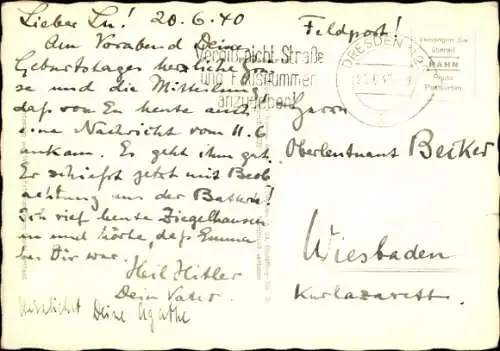 Lieber Lu! 20.6.40
Am Vorabend Deine
Geburtstages herzliche Grü
se und die Mitteilung
daß von En heute auch
eine Nachricht vom 11.6
ankam. Es geht ihm gut.
Er schießt jetzt mit Beob
achtung aus der Batterie!
Ich rief heute Ziegelhausen
an und hörte, daß Emma
bei Dir war.
Heil Hitler
Dein Vater.
Herzlichst Deine Agathe
Feldpost!
Vergiß nicht Straße
und
anzugeben
DRESDEN
Verlangen Sie
überall
HAHN
Photo
Postkarten
Herrn
Oberleutnant Becker
Wiesbaden
Kurlazarett.